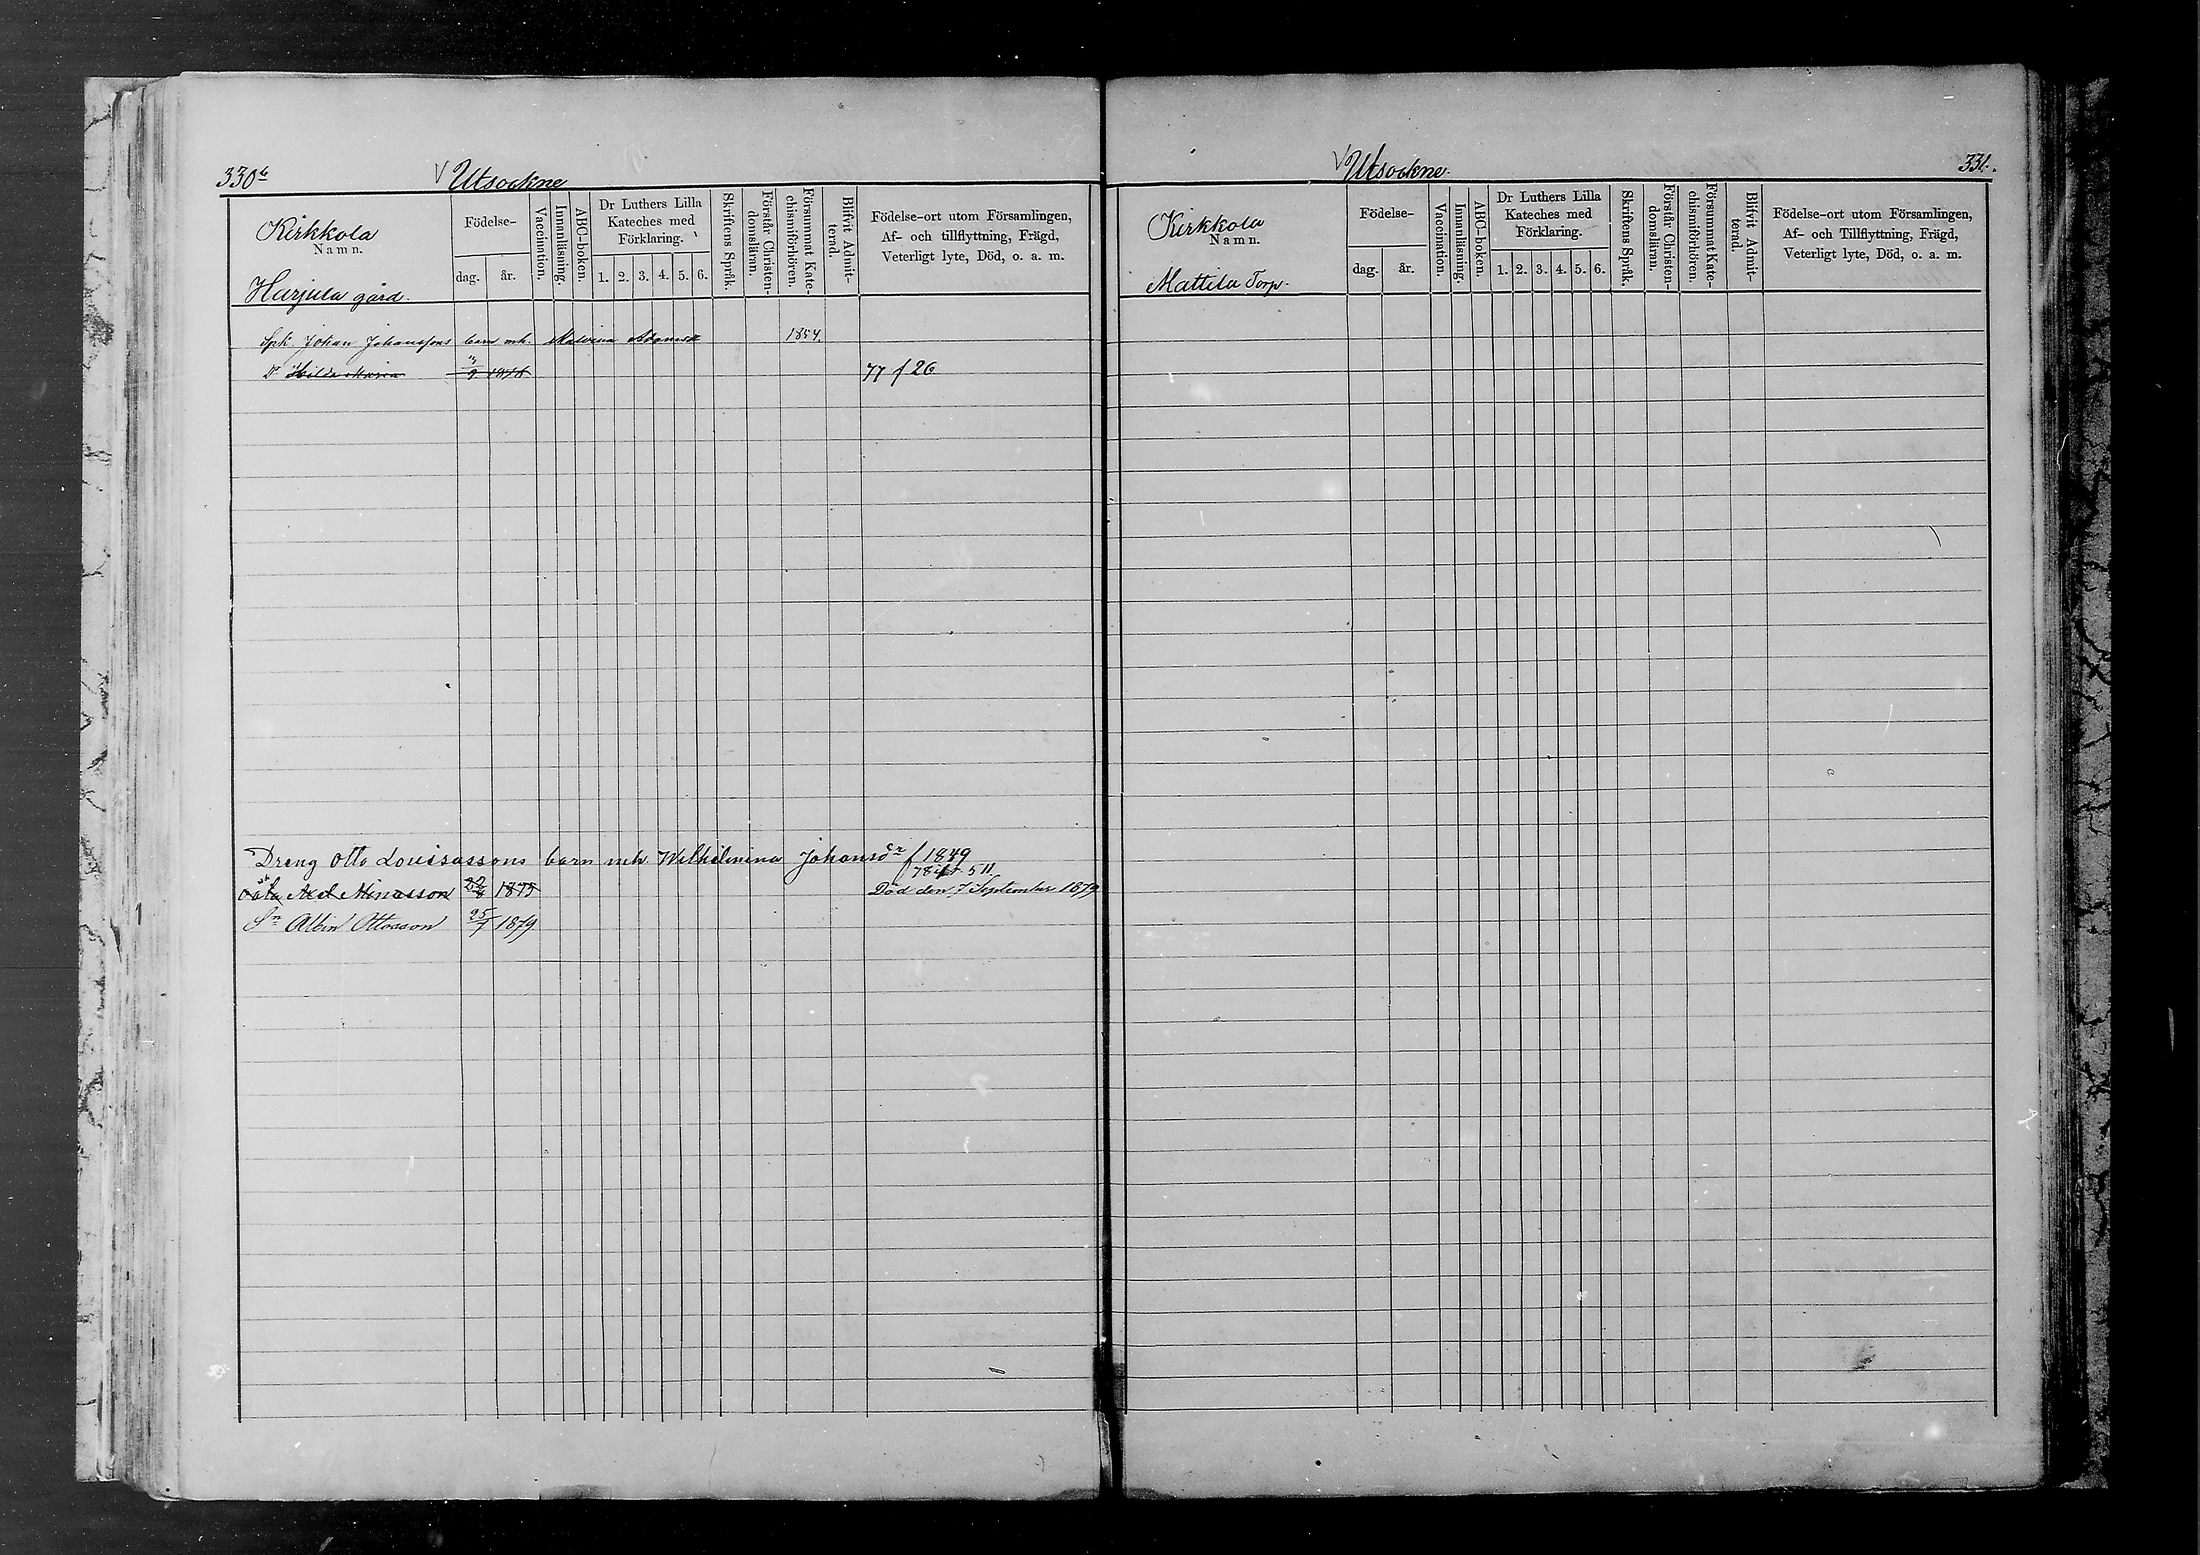 330b
V Utsockne
Kirkkola
Namn.
Födelse-
dag. år.
Vaccination.
Innanläsning.
ABC-boken.
Dr Luthers Lilla
Kateches med
Förklaring.
1. 2. 3. 4. 5. 6.
Skriftens Språk.
Förstår Christen-
domsläran.
Försummat Kate-
chismiförhören.
Blifvit Admit-
terad.
Födelse-ort utom Församlingen,
Af- och tillflyttning, Frägd,
Veterligt lyte, Död, o. a. m.
Harjula gård.
Johan Johanssons barn mh. 1854.
Dr Hilda Maria 9 1878 77 f 26
Dreng Otto Louisassons barn mh Wilhelmina Johansdr f 1849
78 511
Axel Minasson 22/8 1875 Död den 7 September 1879
Sn Albin Ottosson 25/7 1879
V Utsockne.
331.
Kirkkola
Namn.
Födelse-
dag. år.
Vaccination.
Innanläsning.
ABC-boken.
Dr Luthers Lilla
Kateches med
Förklaring.
1. 2. 3. 4. 5. 6.
Skriftens Språk.
Förstår Christen-
domsläran.
Försummat Kate-
chismiförhören.
Blifvit Admit-
terad.
Födelse-ort utom Församlingen,
Af- och Tillflyttning, Frägd,
Veterligt lyte, Död, o. a. m.
Mattila Torp.